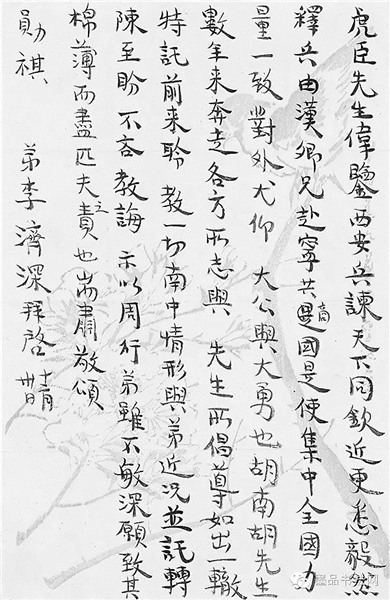 虎臣先生偉鑒西安兵諫天下同欽近更悉毅然
釋兵由漢卿兄赴寧共商國是使集中全國力
量一致對外尤仰 大公與大勇也胡南胡先生
數年来奔走各方所志與 先生所倡導如出一轍
特託前来聆 教一切南中情形與弟近況並託轉
陳至盼 不吝教誨 示以周行弟雖不敏深願致其
棉薄而盡匹夫之責也耑肅敬頌
勛祺 弟李濟深拜啓
墨品书法网